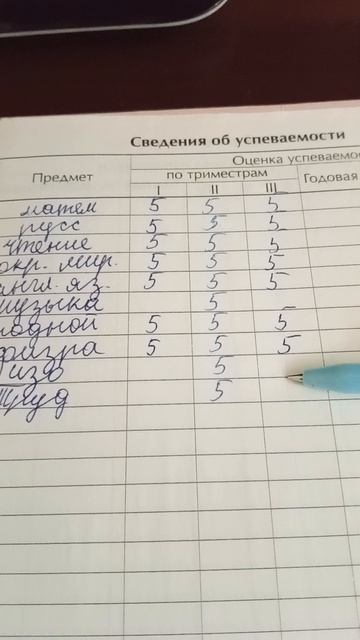 Сведения об успеваемости
Оценка успеваемо
Предмет по триместрам Годовая
I II III
матем 5 5 5
русс 5 5 5
чтение 5 5 5
окр. мир. 5 5 5
англ. яз. 5 5 5
музыка 5 –
родной 5 5 5
физра 5 5 5
изо 5
труд 5